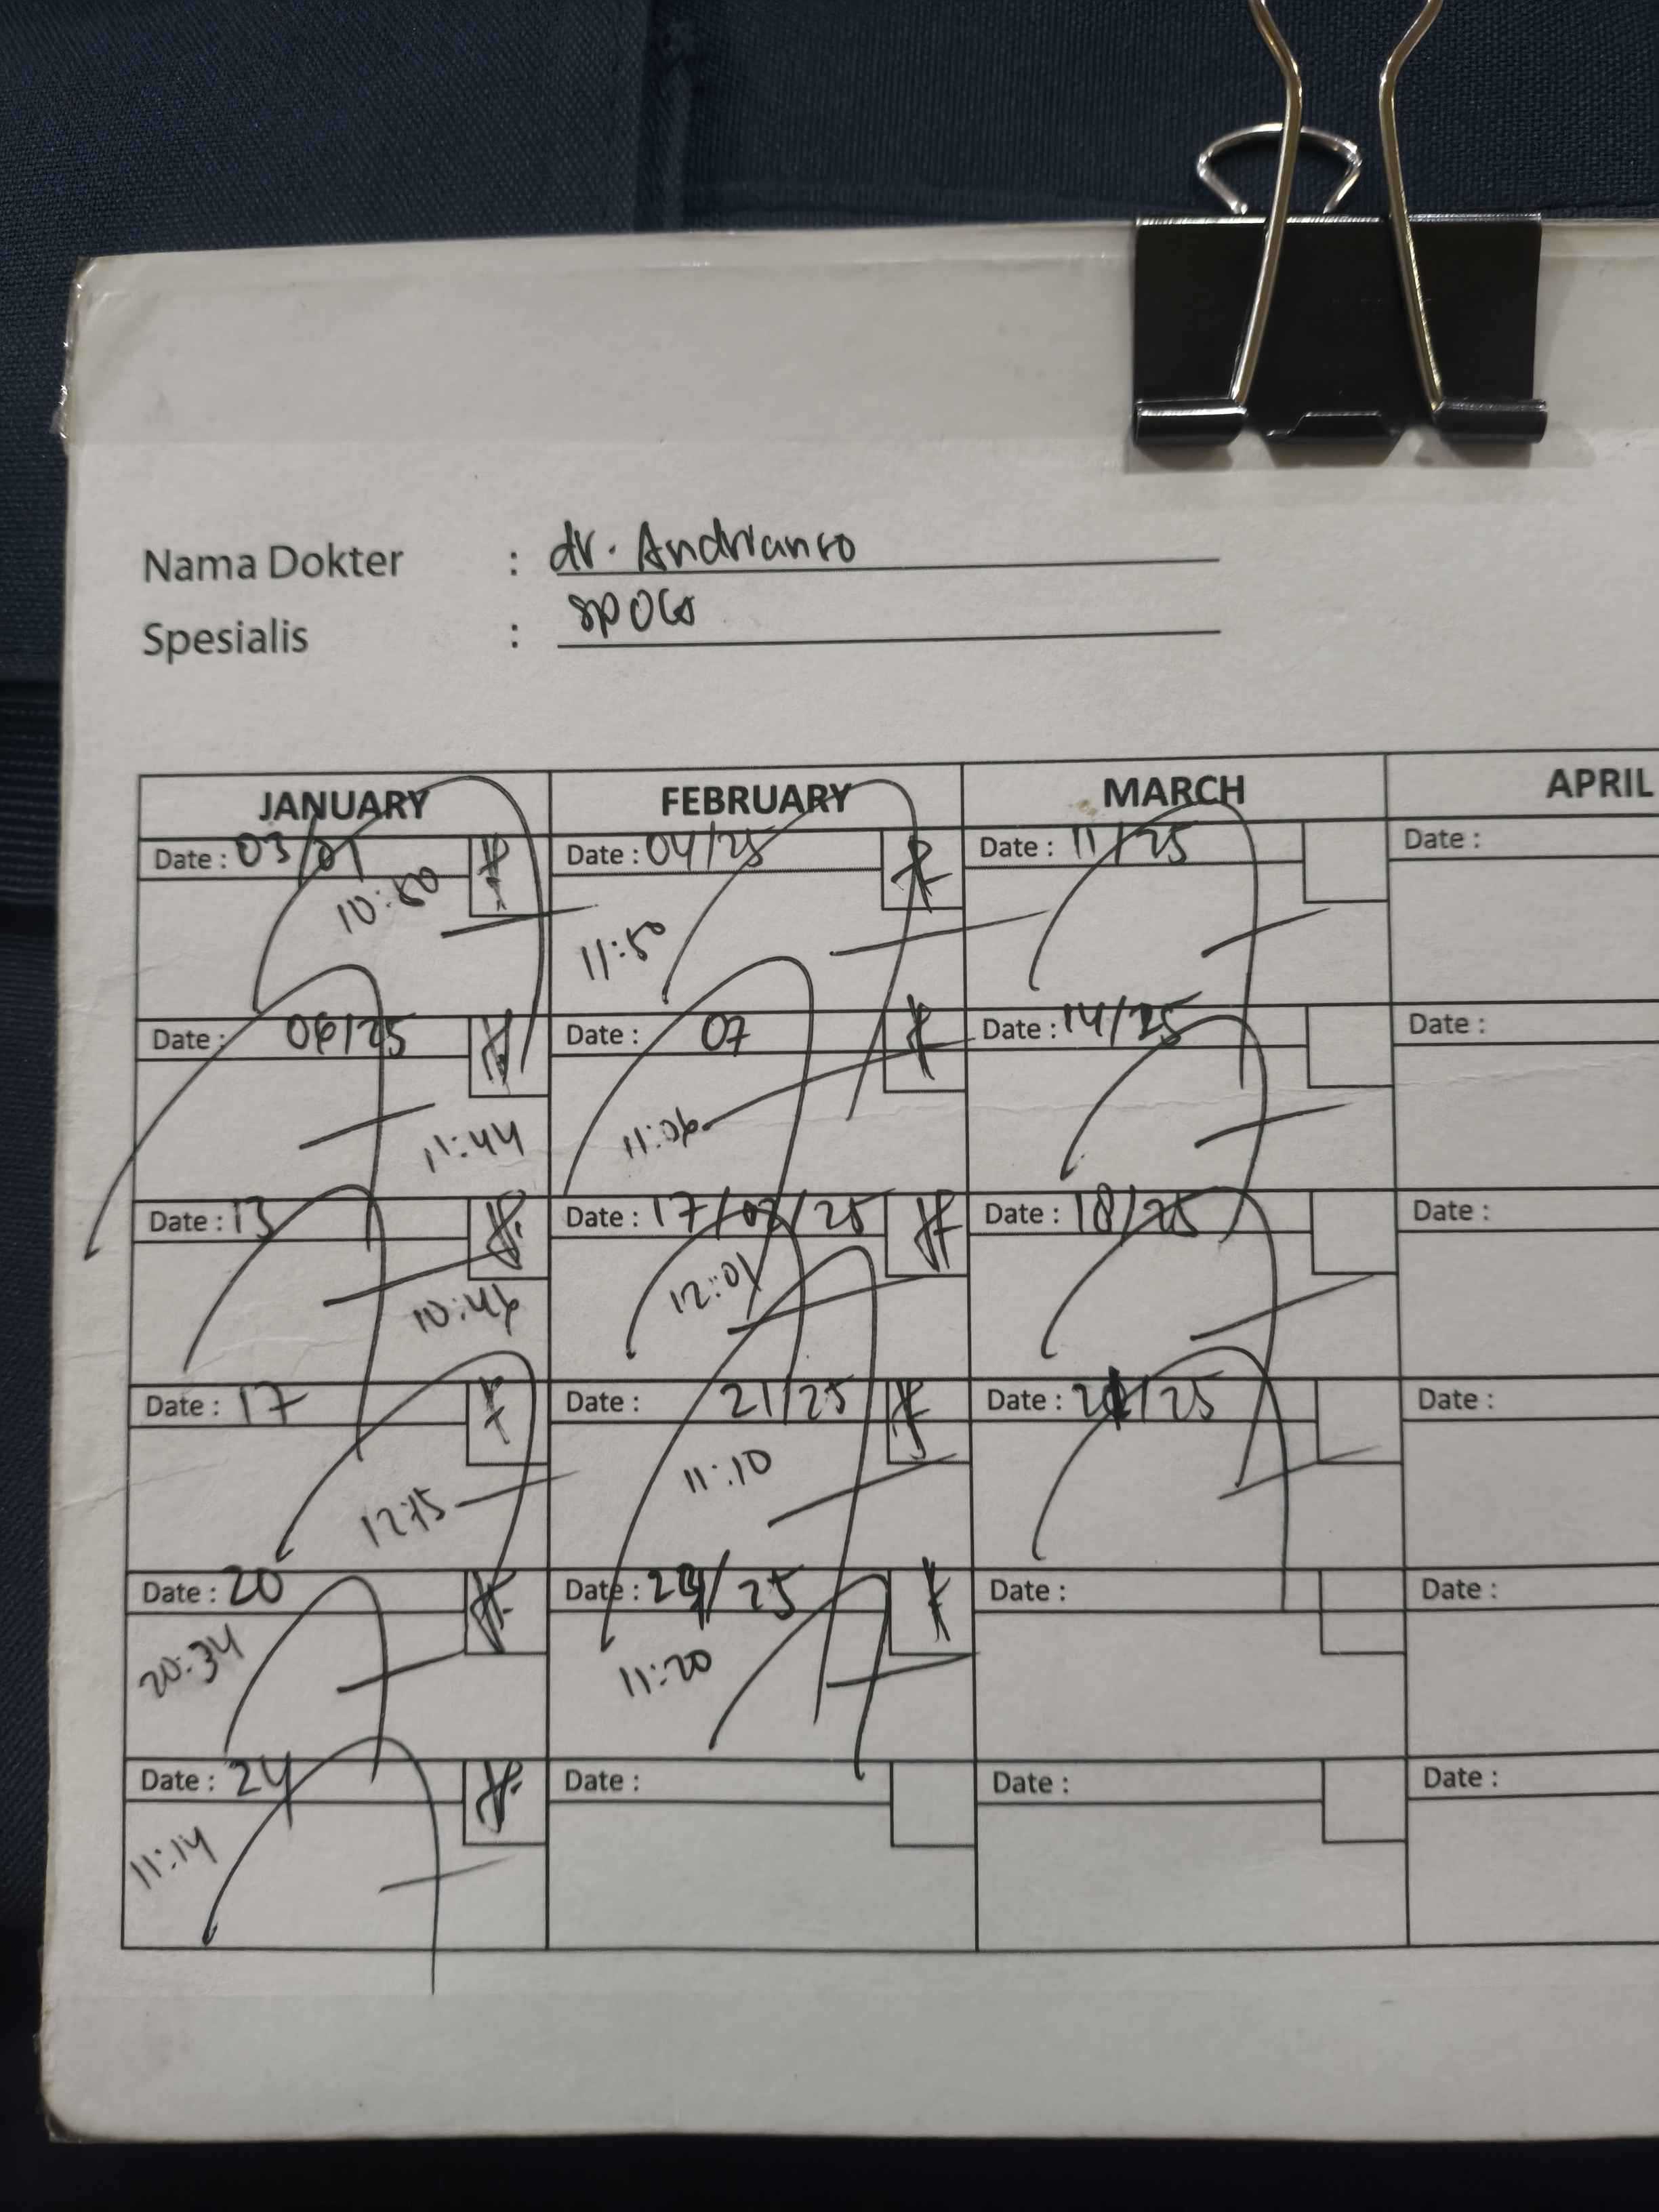 Nama Dokter : dr. Andrianto
Spesialis : SPOG
JANUARY FEBRUARY MARCH APRIL
Date : 03/01 Date : 04/25 Date : 11/25 Date :
10:50 11:50
Date : 06/25 Date : 07 Date : 14/25 Date :
11:44 11:06
Date : 13 Date : 17/02/25 Date : 18/25 Date :
10:46 12:01
Date : 17 Date : 21/25 Date : /25 Date :
12:15 11:10
Date : 20 Date : 24/25 Date : Date :
20:34 11:20
Date : 24 Date : Date : Date :
11:14